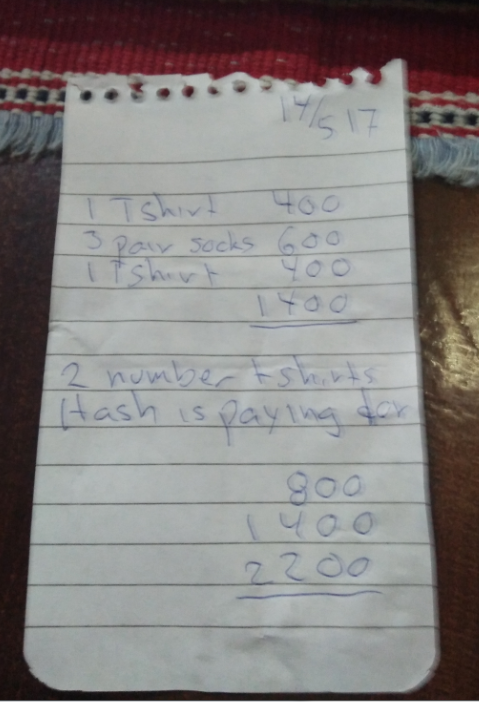 14/5 17
1 Tshirt 400
3 pair socks 600
1 Tshirt 400
1400
2 number tshirts
Hash is paying for
800
1400
2200